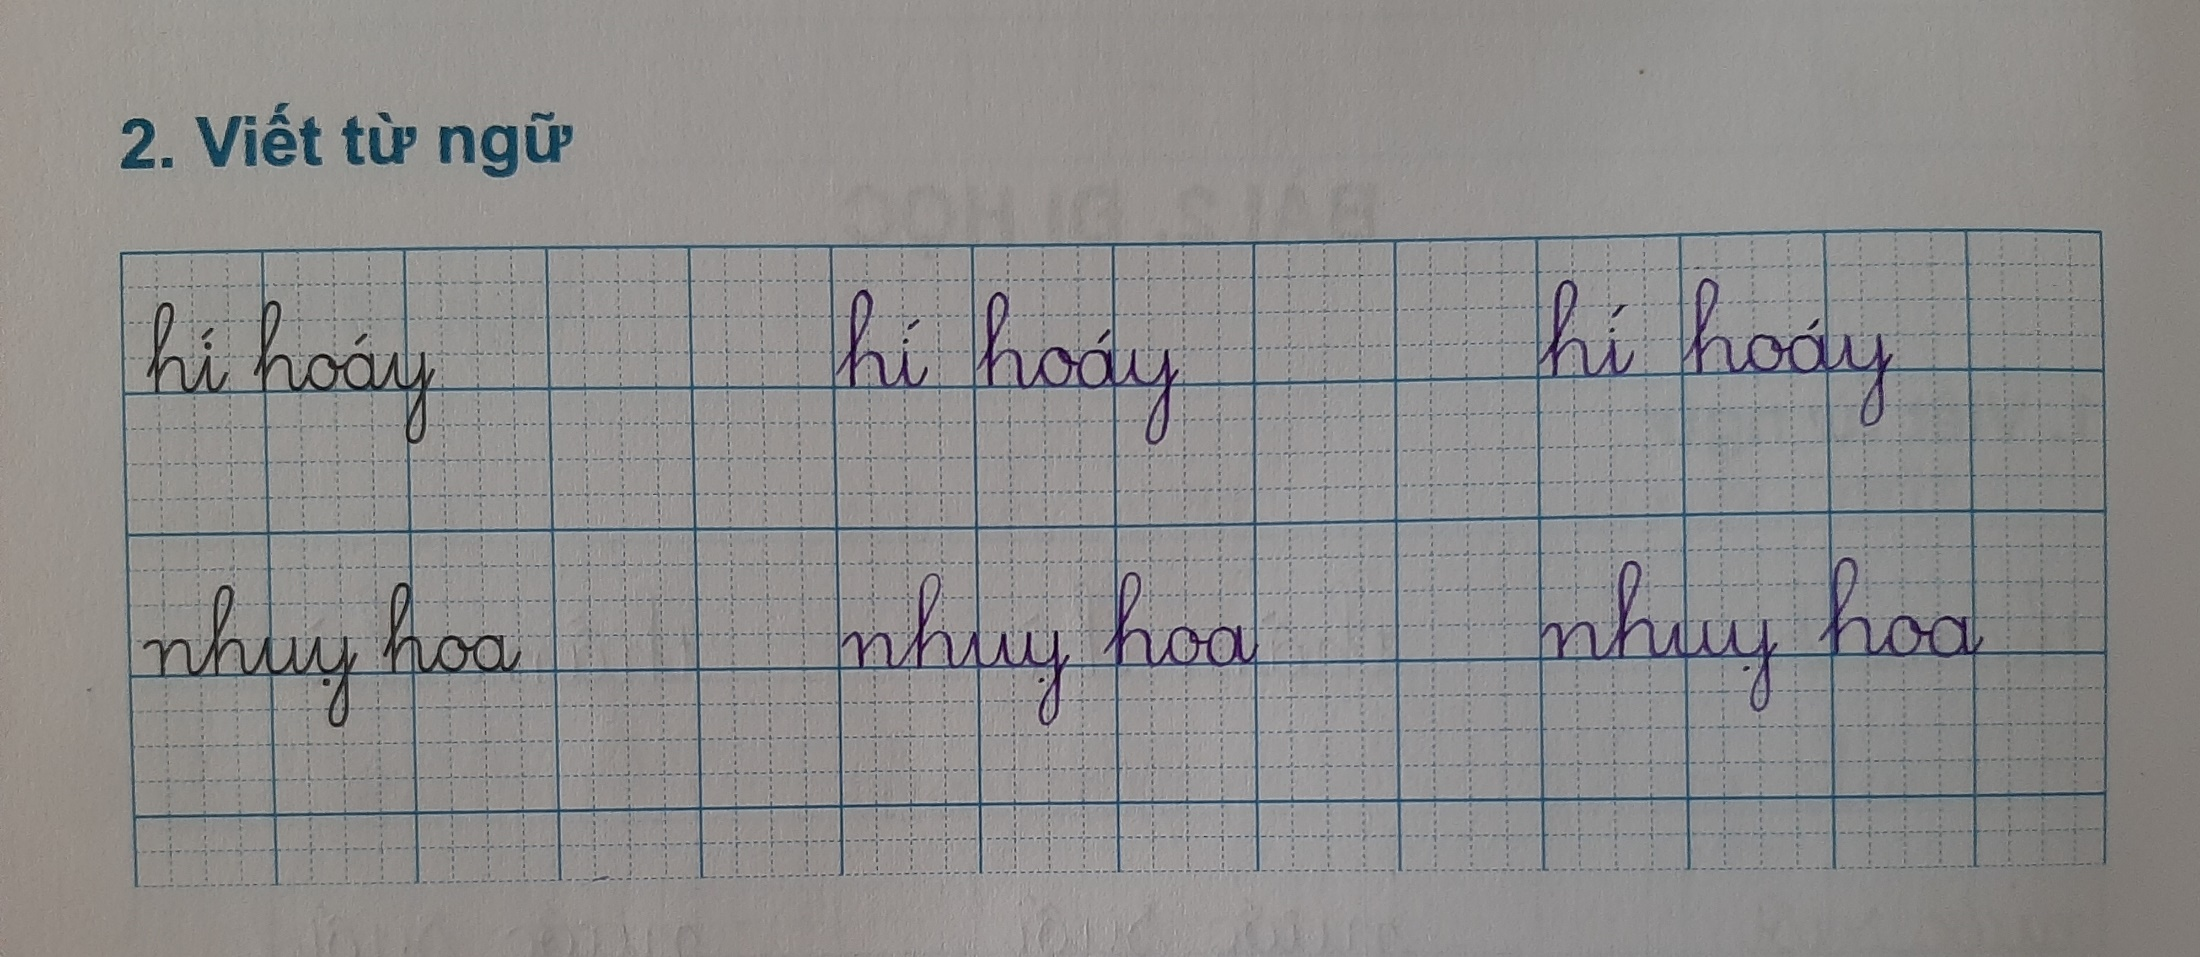 2. Viết từ ngữ
hí hoáy hí hoáy hí hoáy
nhuỵ hoa nhuỵ hoa nhuỵ hoa